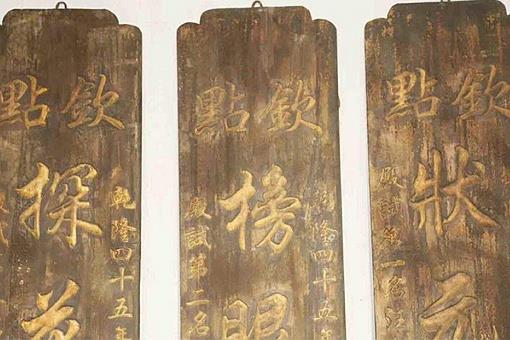 欽點
狀元
殿試第一名汪
欽點
乾隆四十五年
榜眼
殿試第二名
欽點
乾隆四十五年
探花